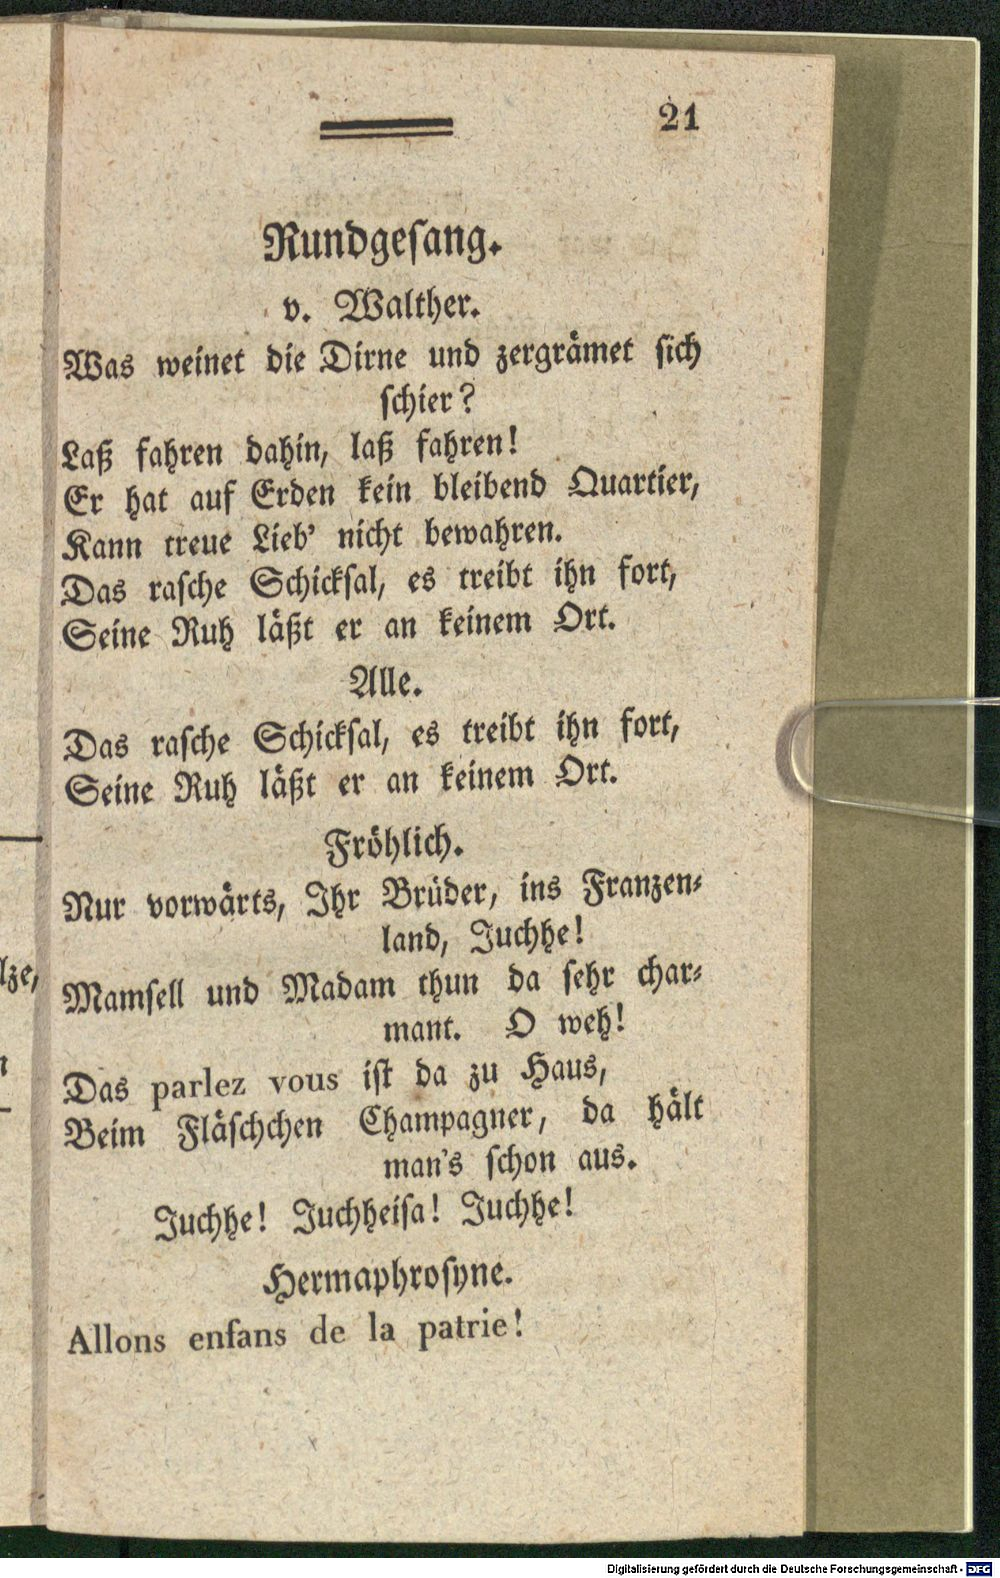 21
Rundgesang.
v. Walther.
Was weinet die Dirne und zergrämet sich
schier?
Laß fahren dahin, laß fahren!
Er hat auf Erden kein bleibend Quartier,
Kann treue Lieb' nicht bewahren.
Das rasche Schicksal, es treibt ihn fort,
Seine Ruh läßt er an keinem Ort.
Alle.
Das rasche Schicksal, es treibt ihn fort,
Seine Ruh läßt er an keinem Ort.
Fröhlich.
Nur vorwärts, Ihr Brüder, ins Franzen-
land, Juchhe!
Mamsell und Madam thun da sehr char-
mant. O weh!
Das parlez vous ist da zu Haus,
Beim Fläschchen Champagner, da hält
man's schon aus.
Juchhe! Juchheisa! Juchhe!
Hermaphrosyne.
Allons enfans de la patrie!
lze,
Digitalisierung gefördert durch die Deutsche Forschungsgemeinschaft - DFG